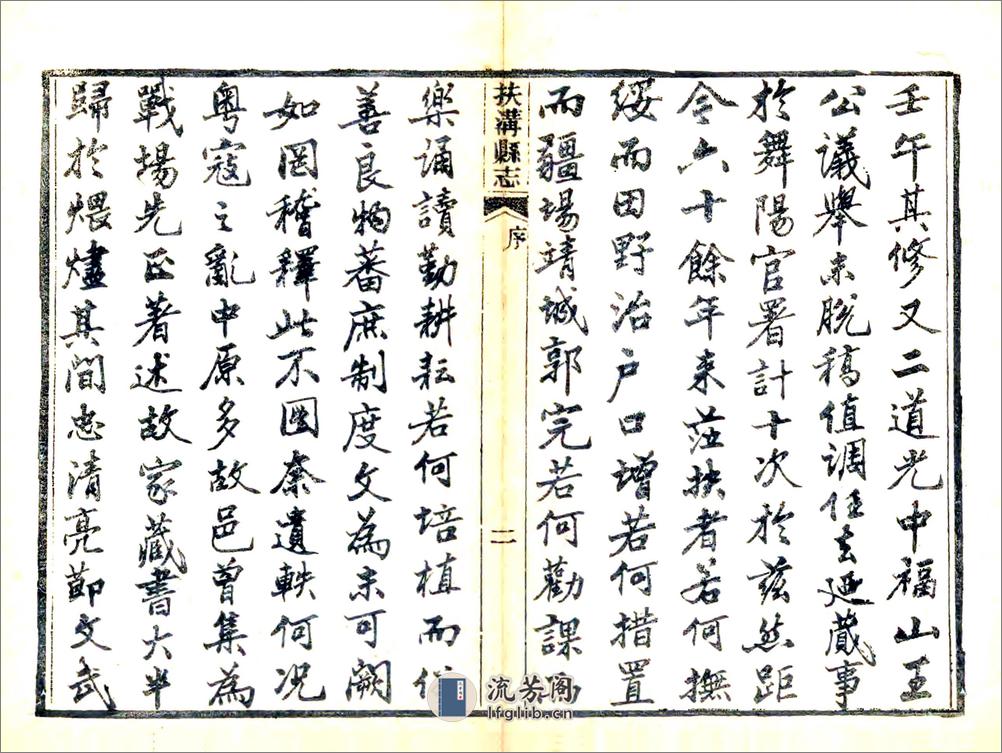 壬午其修又二道光中福山王
公議舉未脫稿值調任去迺蕆事
於舞陽官署計十次於茲然距
今六十餘年來蒞扶者若何撫
綏而田野治戶口增若何措置
而疆場靖城郭完若何勸課
扶溝縣志
序
二
樂誦讀勤耕耘若何培植而俗
善良物蕃庶制度文為未可闕
如罔稽釋此不圖奈遺軼何況
粵寇之亂中原多故邑曾集為
戰場先正著述故家藏書大半
歸於煨燼其間忠清亮節文武
流芳阁
lfglib.cn